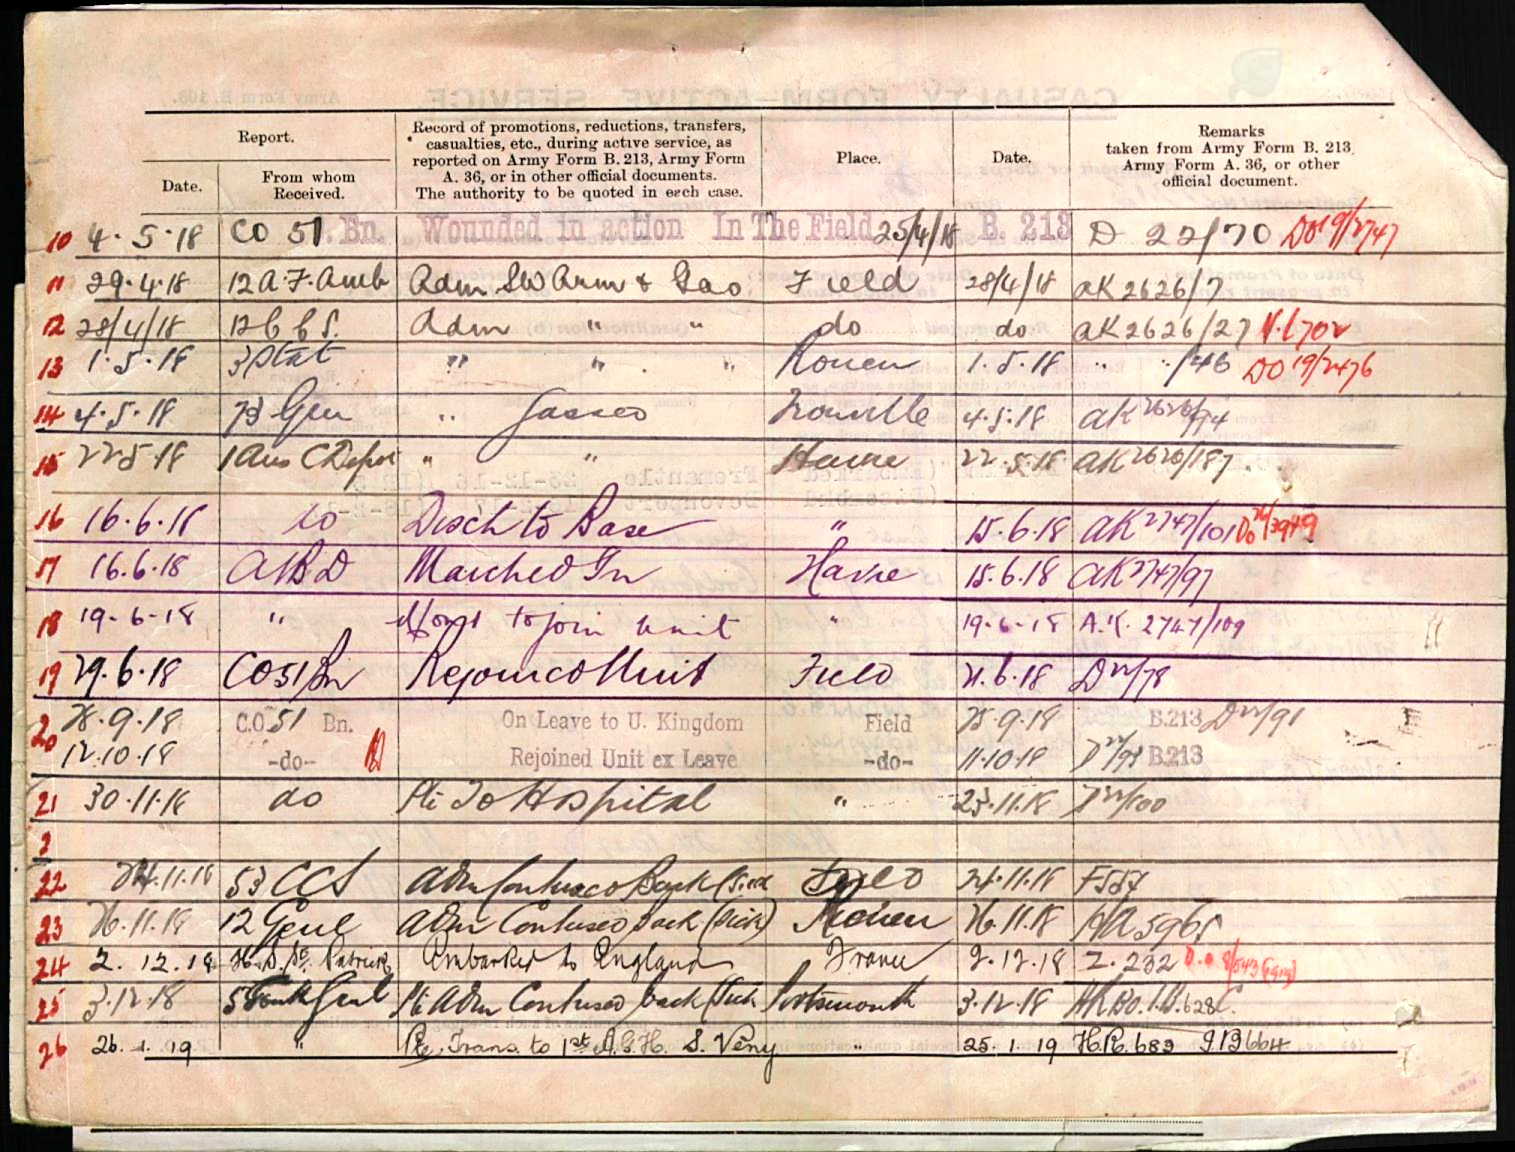 Report.
Record of promotions, reductions, transfers, casualties, etc., during active service, as reported on Army Form B. 213, Army Form A. 36, or in other official documents. The authority to be quoted in each case.
Place.
Date.
Remarks taken from Army Form B. 213, Army Form A. 36, or other official document.
Date.
From whom Received.
10 4.5.18 CO 51 Bn. Wounded in action In The Field 25/4/18 B. 213 D 22/70 DO 19/2747
11 29.4.18 12 A F. Amb Adm SW Arm & Gas Field 28/4/18 AK 2626/7
12 28/4/18 12 C C S. Adm " " do do AK 2626/27
13 1.5.18 3 Stat " " " Rouen 1.5.18 " "/46 DO 19/2476
14 4.5.18 73 Gen " Gassed Trouville 4.5.18 AK 2626/74
15 22.5.18 1 Aus C Depot " " Havre 22.5.18 AK 2626/187.
16 16.6.18 do Disch to Base " 15.6.18 AK 2747/101 Do
17 16.6.18 ABD Marched In Havre 15.6.18 AK 2747/97
18 19.6.18 " to join unit " 19.6.18 A.K. 2747/109
19 29.6.18 CO 51/Bn Rejoined Unit Field 21.6.18 D 22/78
20 .9.18 C.O. 51 Bn. On Leave to U. Kingdom Field 25.9.18 B.213 D 22/91
12.10.18 -do- Rejoined Unit ex Leave -do- 11.10.18 D 22/93 B213
21 30.11.18 do Pte To Hospital " 23.11.18 D 22/100
22 .11.18 53 CCS Adm Contused Back (Sick Field 24.11.18 F557
23 26.11.18 12 Genl Adm Contused back (Sick) Rouen 26.11.18 HA 5965
24 2.12.18 H.S. St. Patrick Embarked to England France 2.12.18 Z.232
25 3.12.18 5 Genl Pte Adm Contused back (Sick Portsmouth 3.12.18
26 26.1.19 " Pte. Trans. to 1st A.G.H. S. Veny " 25.1.19 H.R. 683